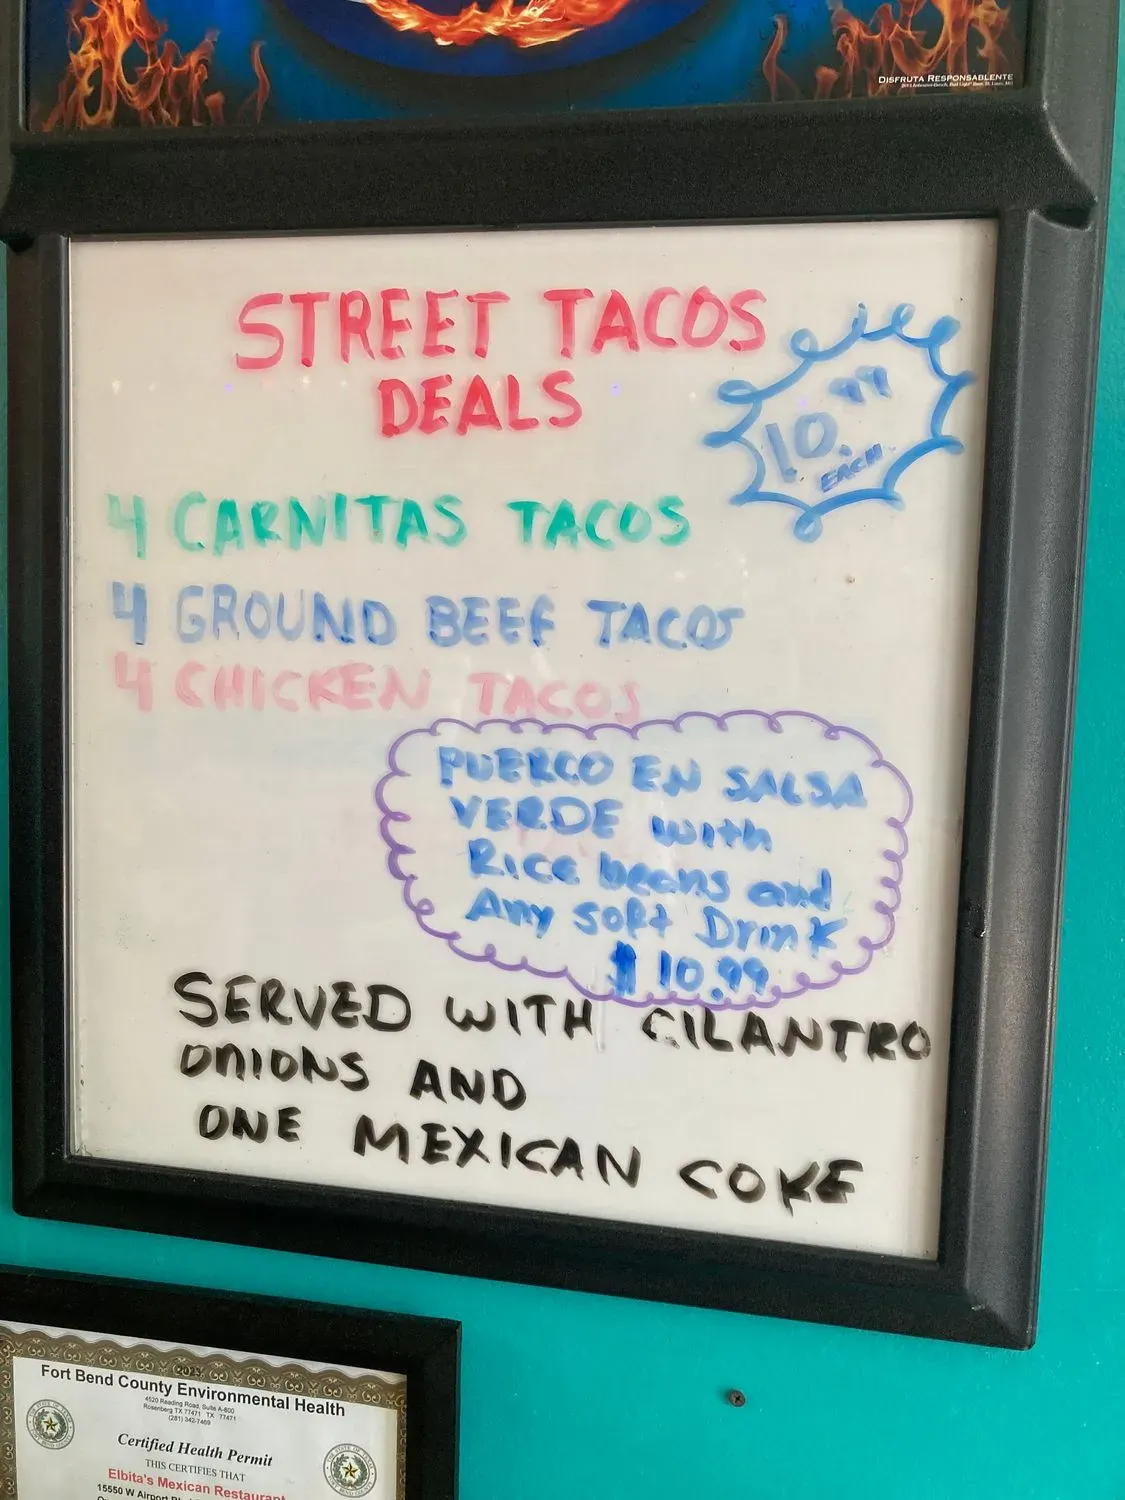 DISFRUTA RESPONSABLENTE
STREET TACOS
DEALS
10.99
EACH
4 CARNITAS TACOS
4 GROUND BEEF TACOS
4 CHICKEN TACOS
PUERCO EN SALSA
VERDE with
Rice beans and
Any soft Drink
$10.99
SERVED WITH CILANTRO
ONIONS AND
ONE MEXICAN COKE
2023
Fort Bend County Environmental Health
4520 Reading Road, Suite A-800
Rosenberg TX 77471 TX 77471
(281) 342-7469
Certified Health Permit
THIS CERTIFIES THAT
Elbita's Mexican Restaurant
15550 W Airport